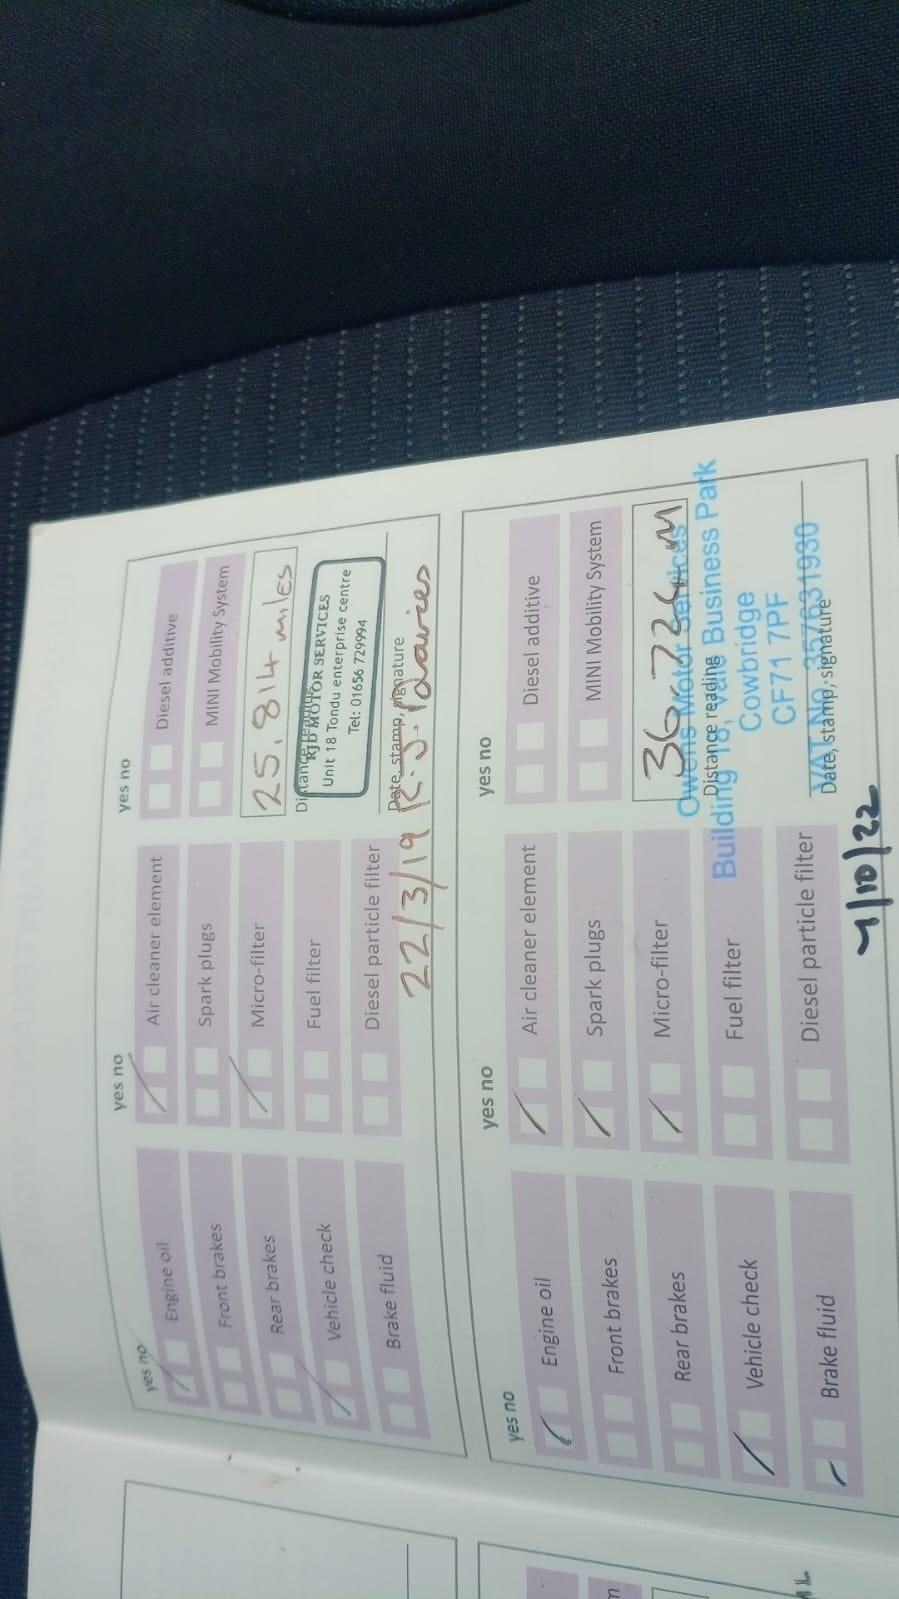 yes no
Engine oil
Front brakes
Rear brakes
Vehicle check
Brake fluid
yes no
Air cleaner element
Spark plugs
Micro-filter
Fuel filter
Diesel particle filter
yes no
Diesel additive
MINI Mobility System
25,814 miles
Distance reading
RJD MOTOR SERVICES
Unit 18 Tondu enterprise centre
Tel: 01656 729994
Date, stamp, signature
22/3/19 R.J. Davies
yes no
Engine oil
Front brakes
Rear brakes
Vehicle check
Brake fluid
yes no
Air cleaner element
Spark plugs
Micro-filter
Fuel filter
Diesel particle filter
yes no
Diesel additive
MINI Mobility System
36724 m
Distance reading
Owens Motor Services
Building 18, Vale Business Park
Cowbridge
CF71 7PF
VAT No 357631930
Date, stamp, signature
/10/22